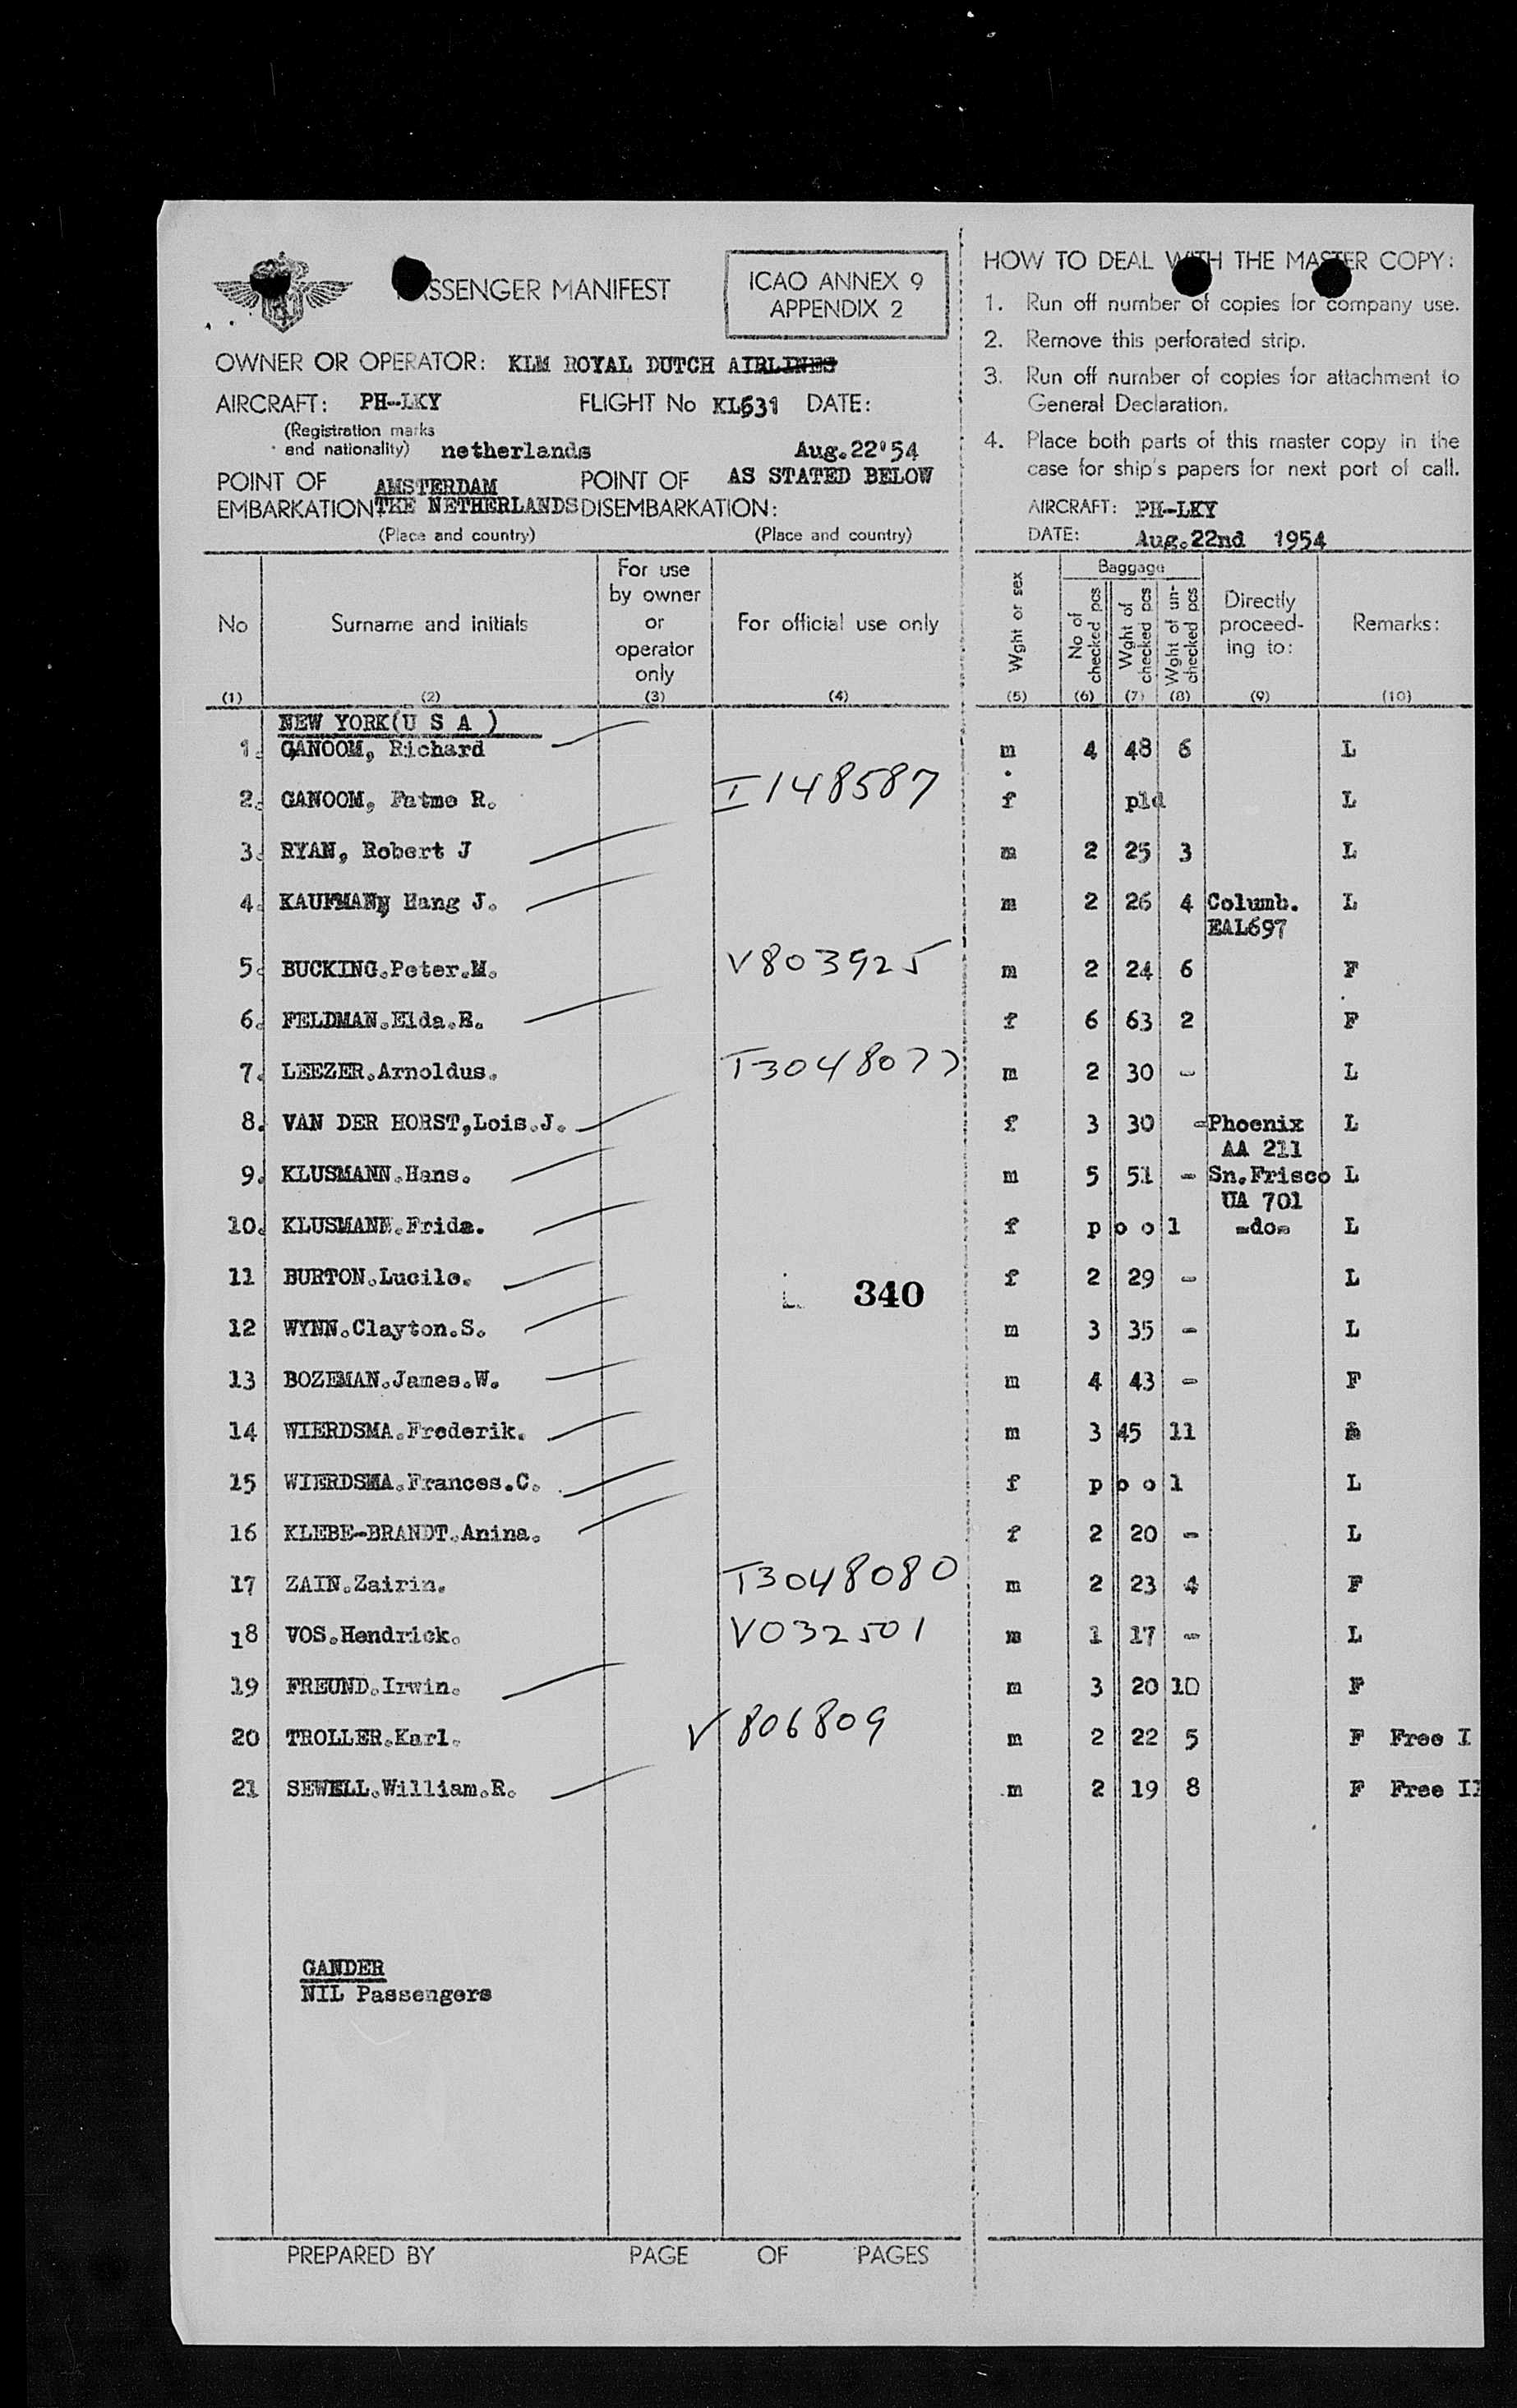 PASSENGER MANIFEST
ICAO ANNEX 9
APPENDIX 2
OWNER OR OPERATOR: KLM ROYAL DUTCH AIRLINES
AIRCRAFT: PH-LKY FLIGHT No KL631 DATE:
(Registration marks
and nationality) netherlands Aug.22'54
POINT OF AMSTERDAM POINT OF AS STATED BELOW
EMBARKATION THE NETHERLANDS DISEMBARKATION:
(Place and country) (Place and country)
HOW TO DEAL WITH THE MASTER COPY:
1. Run off number of copies for company use.
2. Remove this perforated strip.
3. Run off number of copies for attachment to
General Declaration.
4. Place both parts of this master copy in the
case for ship's papers for next port of call.
AIRCRAFT: PH-LKY
DATE: Aug.22nd 1954
No Surname and initials For use by owner or operator only For official use only Wght or sex Baggage No of checked pcs Wght of checked pcs Wght of un-checked pcs Directly proceed-ing to: Remarks:
(1) (2) (3) (4) (5) (6) (7) (8) (9) (10)
NEW YORK(U S A )
1. GANOOM, Richard m 4 48 6 L
2. GANOOM, Fatme R. I148587 f pld L
3. RYAN, Robert J m 2 25 3 L
4. KAUFMANN Hang J. m 2 26 4 Columb. L
EAL697
5. BUCKING.Peter.M. V803925 m 2 24 6 F
6. FELDMAN.Elda.R. f 6 63 2 F
7. LEEZER.Arnoldus. T3048077 m 2 30 - L
8. VAN DER HORST,Lois.J. f 3 30 -Phoenix L
AA 211
9. KLUSMANN.Hans. m 5 51 - Sn.Frisco L
UA 701
10. KLUSMANN.Frida. f p o o l -do- L
11 BURTON.Lucile. f 2 29 - L
340
12 WYNN.Clayton.S. m 3 35 - L
13 BOZEMAN.James.W. m 4 43 - F
14 WIERDSMA.Frederik. m 3 45 11
15 WIERDSMA.Frances.C. f p o o l L
16 KLEBE-BRANDT.Anina. f 2 20 - L
17 ZAIN.Zairin. T3048080 m 2 23 4 F
18 VOS.Hendrick. V032501 m 1 17 - L
19 FREUND.Irwin. m 3 20 10 F
20 TROLLER.Karl. V806809 m 2 22 5 F Free I
21 SEWELL.William.R. m 2 19 8 F Free II
GANDER
NIL Passengers
PREPARED BY PAGE OF PAGES